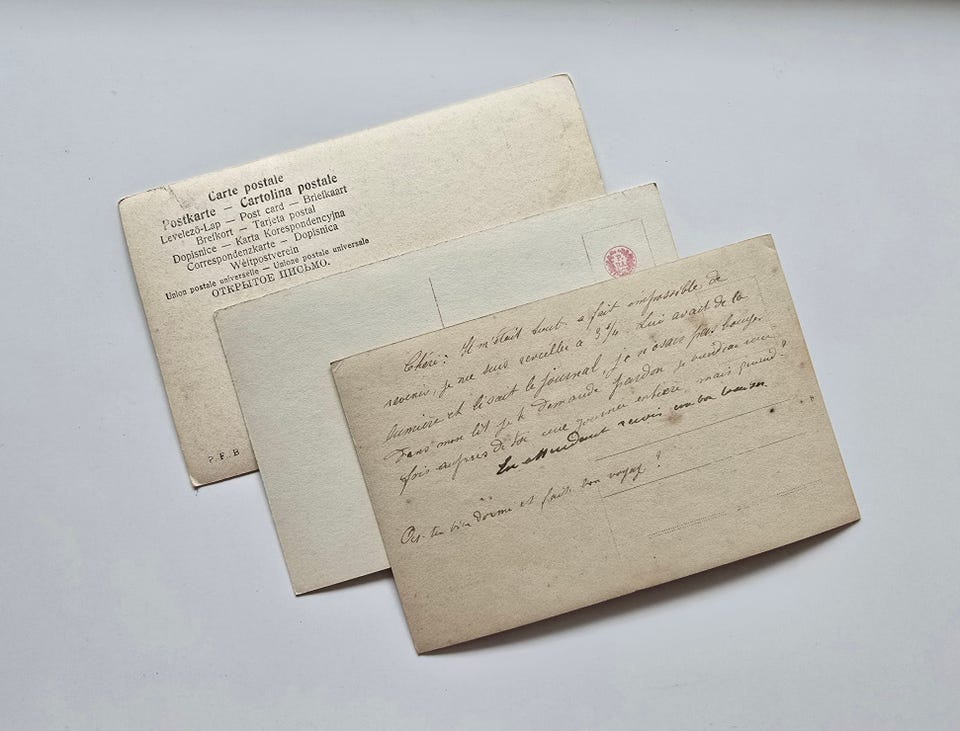 Carte postale
Postkarte — Cartolina postale
Levelező-Lap — Post card — Briefkaart
Brefkort — Tarjeta postal
Dopisnice — Karta Korespondencyjna
Correspondenzkarte — Dopisnica
Weltpostverein
Union postale universelle — Unione postale universale
ОТКРЫТОЕ ПИСЬМО.
P. F. B
Chéri: Il m'était tout a fait impossible de
revenir, je me suis reveillée à 3 ¼. Lui avait de la
lumière et lisait le journal, je n'osais pas bouger
dans mon lit je te demande pardon je voudrai
fois aupres de toi une journee entiere, mais quand?
En attendant recois un bon baiser
As-tu bien dormi et fait bon voyage?